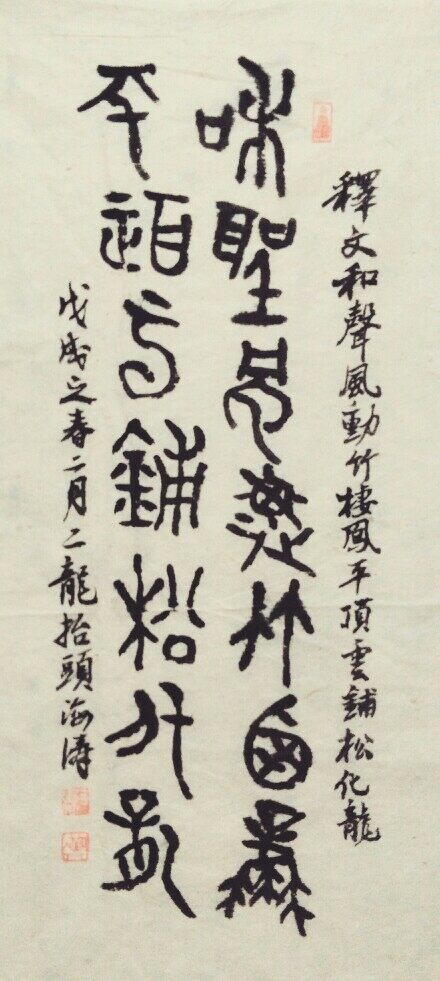 釋文和聲風動竹棲鳳平頂雲鋪松化龍
和聲風動竹棲鳳
平頂雲鋪松化龍
戊戌之春二月二龍抬頭海濤